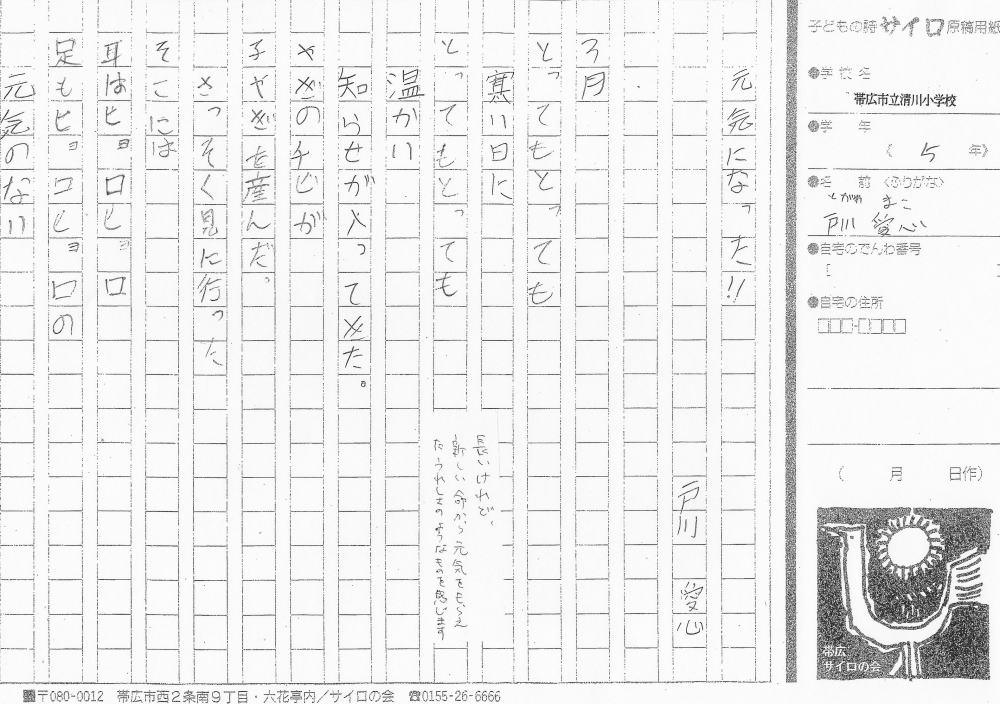 子どもの詩サイロ原稿用紙
学校名
帯広市立清川小学校
学年
〈 5 年〉
名前〈ふりがな〉
とがわ まこ
戸川 愛心
自宅のでんわ番号
自宅の住所
□□□-□□□□
( 月 日作)
帯広
サイロの会
元気になった!!
戸川 愛心
3月
とってもとっても
寒い日に
とってもとっても
温かい
知らせが入ってきた。
やぎのチビが
子やぎを産んだ。
さっそく見に行った
そこには
耳はヒョロヒョロ
足もヒョロヒョロの
元気のない
長いけれど、
新しい命から元気をもらえ
たうれしさのようなものを感じます
〒080-0012 帯広市西2条南9丁目・六花亭内/サイロの会 ☎0155-26-6666